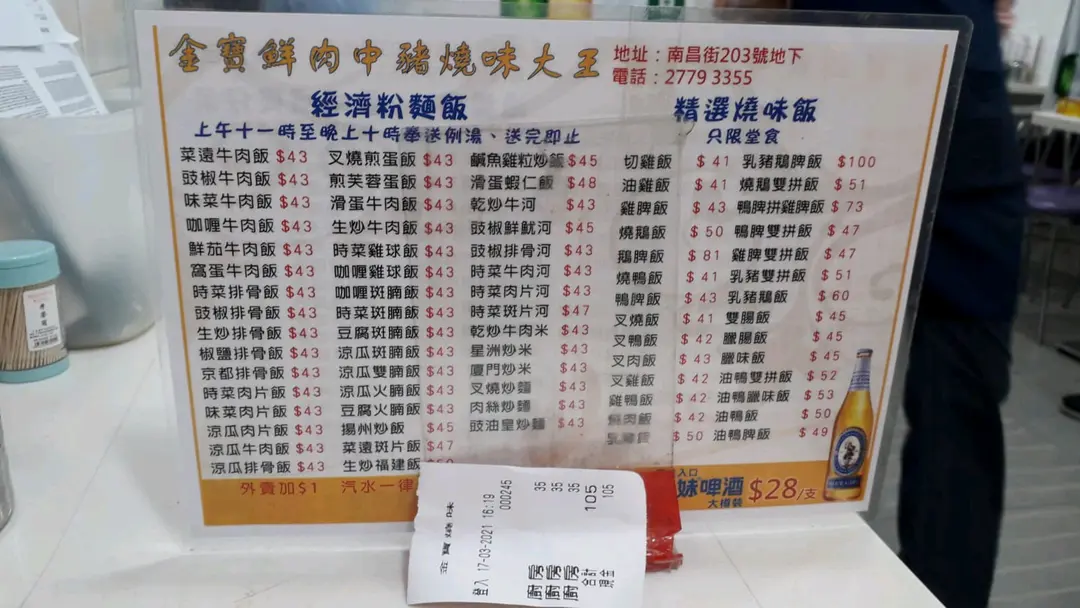 金寶鮮肉中豬燒味大王
地址：南昌街203號地下
電話：2779 3355
經濟粉麵飯
上午十一時至晚上十時奉送例湯、送完即止
菜遠牛肉飯 $43
豉椒牛肉飯 $43
味菜牛肉飯 $43
咖喱牛肉飯 $43
鮮茄牛肉飯 $43
窩蛋牛肉飯 $43
時菜排骨飯 $43
豉椒排骨飯 $43
生炒排骨飯 $43
椒鹽排骨飯 $43
京都排骨飯 $43
時菜肉片飯 $43
味菜肉片飯 $43
涼瓜肉片飯 $43
涼瓜牛肉飯 $43
涼瓜排骨飯 $43
叉燒煎蛋飯 $43
煎芙蓉蛋飯 $43
滑蛋牛肉飯 $43
生炒牛肉飯 $43
時菜雞球飯 $43
咖喱雞球飯 $43
咖喱斑腩飯 $43
時菜斑腩飯 $43
豆腐斑腩飯 $43
涼瓜斑腩飯 $43
涼瓜雙腩飯 $43
涼瓜火腩飯 $43
豆腐火腩飯 $43
揚州炒飯 $45
菜遠斑片飯 $47
生炒福建飯
鹹魚雞粒炒飯 $45
滑蛋蝦仁飯 $48
乾炒牛河 $43
豉椒鮮魷河 $45
豉椒排骨河 $43
時菜牛肉河 $43
時菜肉片河 $43
時菜斑片河 $47
乾炒牛肉米 $43
星洲炒米 $43
廈門炒米 $43
叉燒炒麵 $43
肉絲炒麵 $43
豉油皇炒麵 $43
精選燒味飯
只限堂食
切雞飯 $41
油雞飯 $41
雞脾飯 $43
燒鵝飯 $50
鵝脾飯 $81
燒鴨飯 $41
鴨脾飯 $43
叉燒飯 $41
叉鴨飯 $42
叉肉飯 $43
叉雞飯 $42
雞鴨飯 $42
燒肉飯 $42
乳豬飯 $50
乳豬鵝脾飯 $100
燒鵝雙拼飯 $51
鴨脾拼雞脾飯 $73
鴨脾雙拼飯 $47
雞脾雙拼飯 $47
乳豬雙拼飯 $51
乳豬鵝飯 $60
雙腸飯 $45
臘腸飯 $45
臘味飯 $45
油鴨雙拼飯 $52
油鴨臘味飯 $53
油鴨飯 $50
油鴨脾飯 $49
外賣加$1 汽水一律
入口
妹啤酒 $28/支
大樽裝
金寶燒味
登入 17-03-2021 16:19
000245
廚房 35
廚房 35
廚房 35
合計 105
現金 105